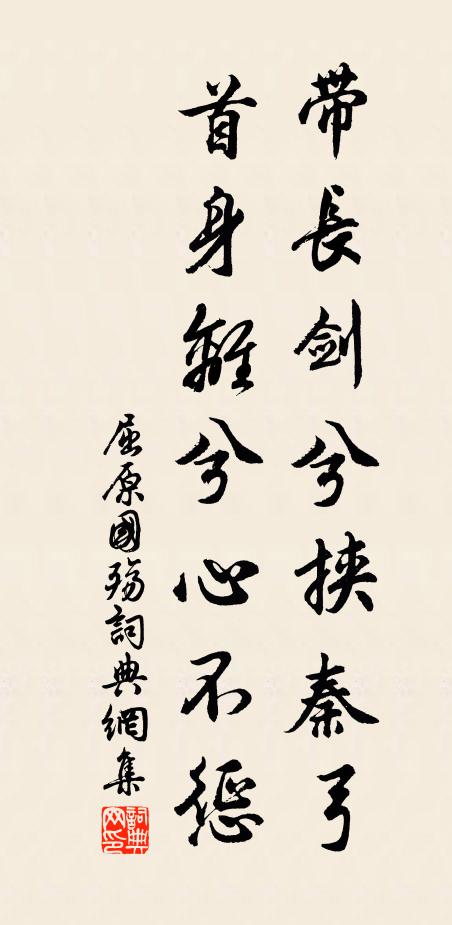 帶長劍兮挾秦弓
首身離兮心不懲
屈原國殤詞典網集
詞典網印